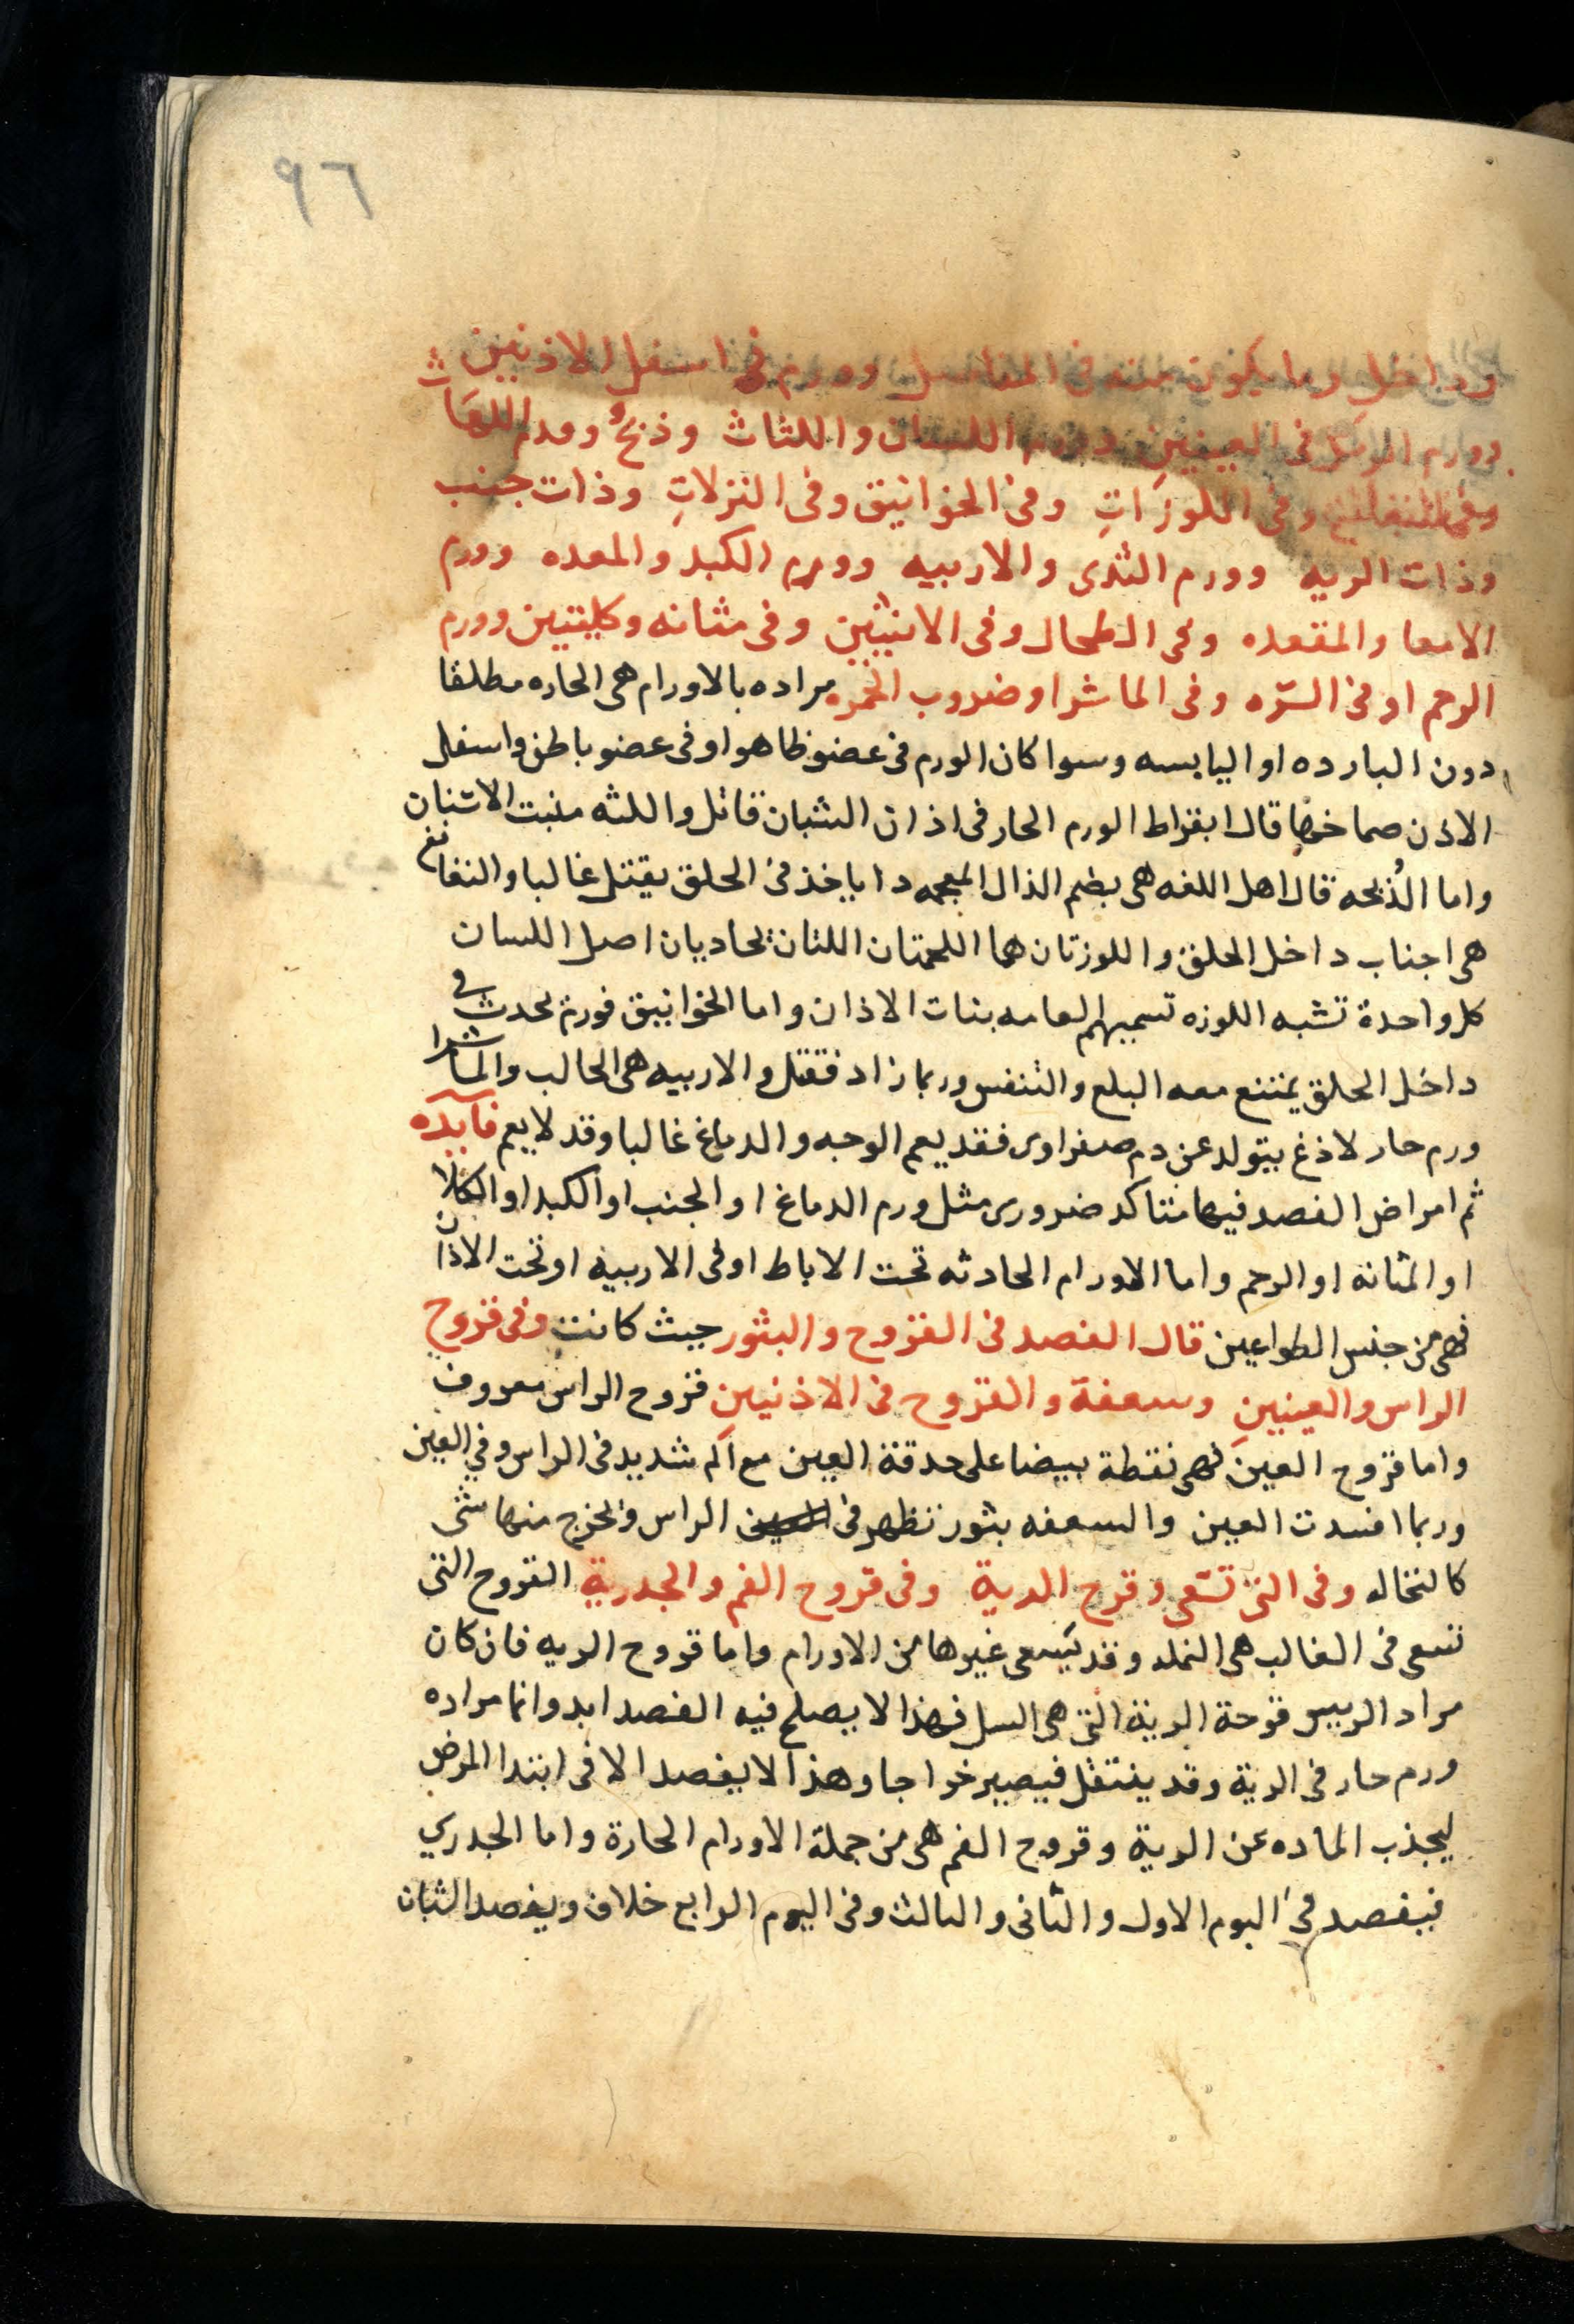 ٩٦
وداخل وما يكون منه فى المفاصل وورم فى اسفل الاذنين
وورم الرمد فى العينين وورم اللسان واللثاث وذبحٌ وورم اللهاث
وفى النغانغ وفى اللوزاتِ وفى الخوانيق وفى النزلاتِ وذات جنب
وذات الريه وورم الثدى والاربيه وورم الكبد والمعده وورم
الامعا والمقعده وفى الطحال وفى الانثيين وفى مثانه وكليتين وورم
الرحم او فى السرّه وفى الماشرا وضروب الحمره مراده بالاورام هى الحاره مطلقا
دون البارده او اليابسه وسوا كان الورم فى عضو ظاهر او فى عضو باطن واسفل
الاذن صماخها قال ابقراط الورم الحار فى اذان الشبان قاتل واللثه منبت الاسنان
واما الذُبحه قال اهل اللغه هى بضم الذال المعجمه دا ياخذ فى الحلق يقتل غالبا والنغانغ
هى اجناب داخل الحلق واللوزتان هما اللحمتان اللتان يحاديان اصل اللسان
كل واحدة تشبه اللوزه تسميهم العامه بنات الاذان واما الخوانيق فورم يحدث فى
داخل الحلق يمتنع معه البلع والتنفس وربما زاد فقتل والاربيه هى الحالب والماشرا
ورم حار لاذغ يتولد عن دم صفراوى فقد يعم الوجه والدماغ غالبا وقد لا يعم فآيده
ثم امراض الفصد فيها متاكد ضرورى مثل ورم الدماغ او الجنب او الكبد او الكلا
او المثانه او الرحم واما الاورام الحادثه تحت الاباط او فى الاربيه او تحت الاذان
فهى من جنس الطواعين قال الفصد فى القروح والبثور حيث كانت وفى قروح
الراس والعينينِ وسعفة والقروح فى الاذنين قروح الراس معروف
واما قروح العين فهى نقطة بيضا على حدقة العين مع الم شديد فى الراس وفي العين
وربما افسدت العين والسعفه بثور تظهر فى العين الراس ويخرج منها شى
كالنخاله وفى التى تسعى وقرح الرية وفى قروح الفم والجدرية القروح التى
تسعى فى الغالب هى النمله وقد يسعى غيرها من الاورام واما قروح الريه فان كان
مراد الرييس قرحة الرية التى هى السل فهذا لا يصلح فيه الفصد ابدا وانما مراده
ورم حار فى الرية وقد ينتقل فيصير خراجا وهذا لا يفصد الا فى ابتدا المرض
ليجذب الماده عن الرية وقروح الفم هى من جملة الاورام الحارة واما الجدري
فيفصد فى اليوم الاول والثانى والثالث وفى اليوم الرابع خلاف ويفصد الشبان